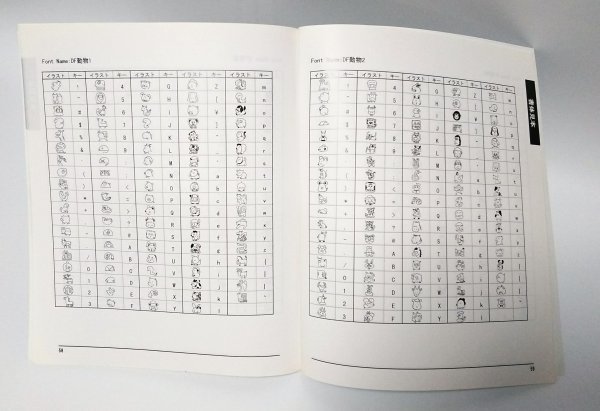 Font Name:DF動物1
イラスト キー イラスト キー イラスト キー イラスト キー イラスト キー
! 4 G Z m
" 5 H [ n
# 6 I ¥ o
$ 7 J ] p
% 8 K ^ q
& 9 L _ r
' : M ` s
( ; N a t
) < O b u
* = P c v
+ > Q d w
, ? R e x
- @ S f y
. A T g z
/ B U h {
0 C V i |
1 D W j }
2 E X k ~
3 F Y l
58
Font Name:DF動物2
イラスト キー イラスト キー イラスト キー イラスト キー イラスト キー
! 4 G Z m
" 5 H [ n
# 6 I ¥ o
$ 7 J ] p
% 8 K ^ q
& 9 L _ r
' : M ` s
( ; N a t
) < O b u
* = P c v
+ > Q d w
, ? R e x
- @ S f y
. A T g z
/ B U h {
0 C V i |
1 D W j }
2 E X k ~
3 F Y l
書体見本
59